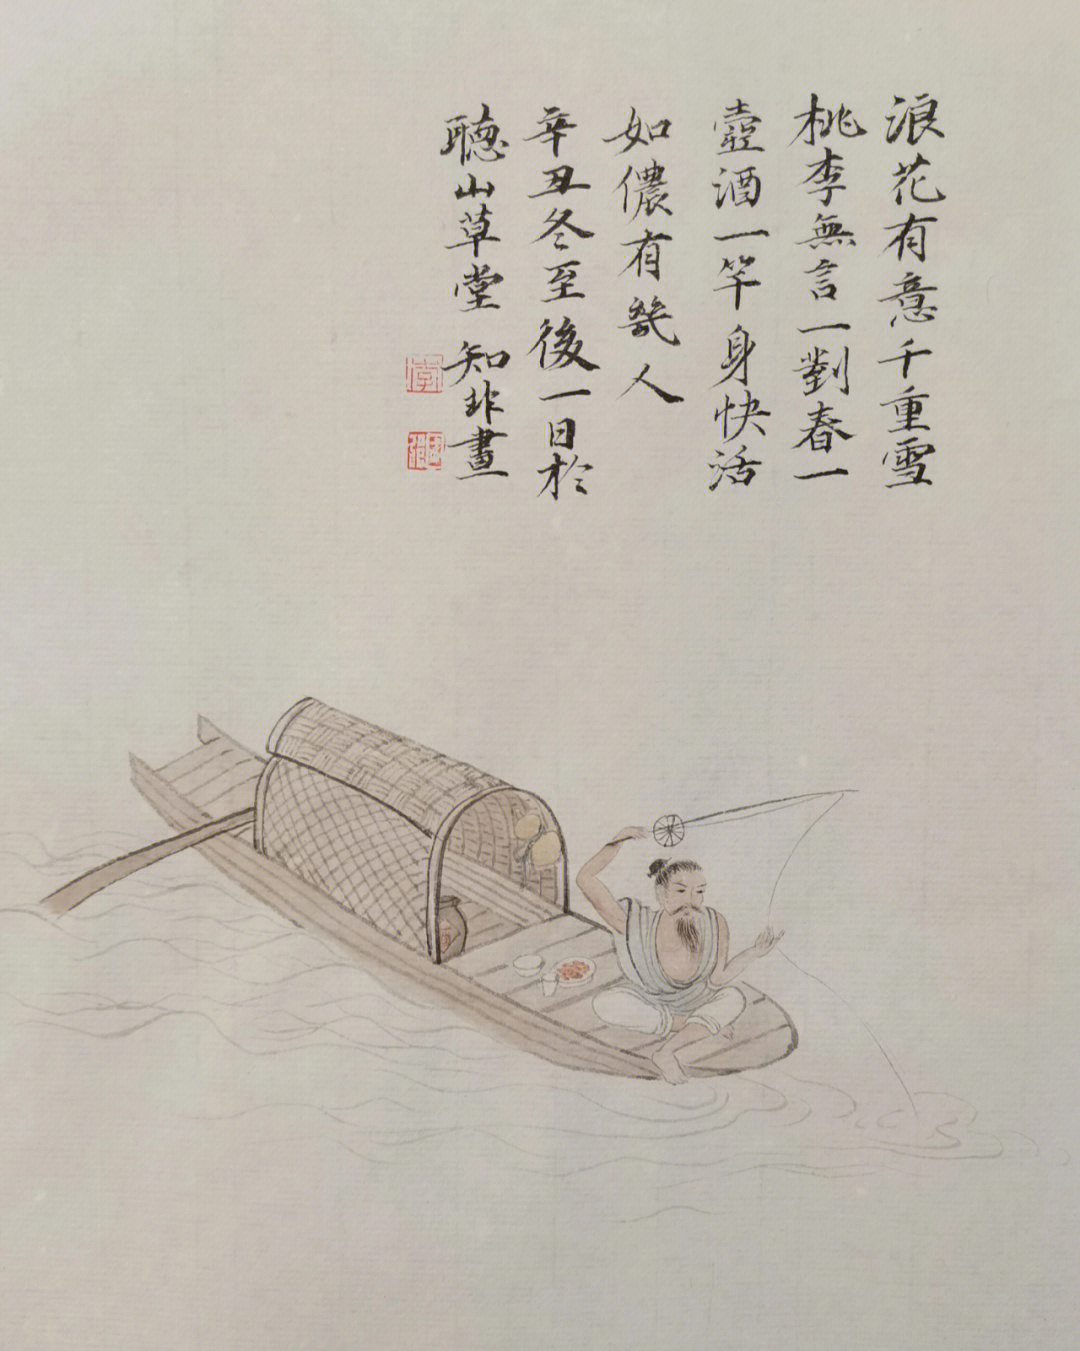 浪花有意千重雪
桃李無言一對春一
壺酒一竿身快活
如儂有幾人
辛丑冬至後一日於
聽山草堂 知非畫